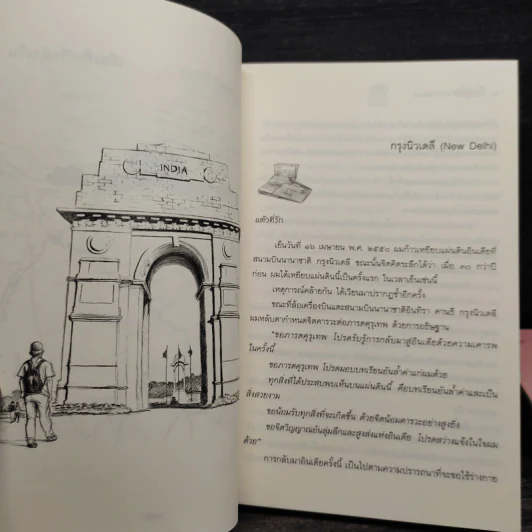 INDIA
กรุงนิวเดลี (New Delhi)
แต้วที่รัก
เย็นวันที่ ๑๖ เมษายน พ.ศ. ๒๕๕๐ ผมก้าวเหยียบแผ่นดินอินเดียที่
สนามบินนานาชาติ กรุงนิวเดลี ขณะนั้นจิตคิดระลึกได้ว่า เมื่อ ๓๐ กว่าปี
ก่อน ผมได้เหยียบแผ่นดินนี้เป็นครั้งแรก ในเวลาเย็นเช่นนี้
เหตุการณ์คล้ายกัน ได้เวียนมาปรากฏซ้ำอีกครั้ง
ขณะที่ล้อเครื่องบินแตะสนามบินนานาชาติอินทิรา คานธี กรุงนิวเดลี
ผมหลับตากำหนดจิตคารวะต่อภารตคุรุเทพ ด้วยการอธิษฐาน
"ขอภารตคุรุเทพ โปรดรับรู้การกลับมาสู่อินเดียด้วยความเคารพ
ในครั้งนี้
ขอภารตคุรุเทพ โปรดมอบบทเรียนอันล้ำค่าแก่ผมด้วย
ทุกสิ่งที่ได้ประสบพบเห็นบนแผ่นดินนี้ คือบทเรียนอันล้ำค่าและเป็น
สิ่งสวยงาม
ขอน้อมรับทุกสิ่งที่จะเกิดขึ้น ด้วยจิตน้อมคารวะอย่างสูงยิ่ง
ขอจิตวิญญาณอันลุ่มลึกและสูงส่งแห่งอินเดีย โปรดสว่างแจ้งในใจผม
ด้วย"
การกลับมาอินเดียครั้งนี้ เป็นไปตามความปรารถนาที่จะขอใช้ร่างกาย